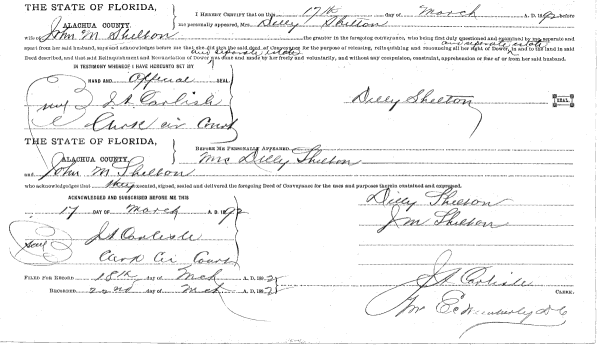 THE STATE OF FLORIDA,
ALACHUA COUNTY.
I HEREBY CERTIFY that on this 17th day of March A. D. 1892 before
me personally appeared, Mrs. Dilly Shelton
wife of John M Shelton the grantor in the foregoing conveyance, who being first duly questioned and examined by me separate and
apart from her said husband, says and acknowledges before me that she did sign the said deed of Conveyance for the purpose of releasing, relinquishing and renouncing all her right of Dower, in and to said land in said
Deed described, and that said Relinquishment and Renunciation of Dower was done and made by her freely and voluntarily, and without any compulsion, constraint, apprehension or fear of or from her said husband.
IN TESTIMONY WHEREOF I HAVE HEREUNTO SET MY
HAND AND Official SEAL
J. A. Carlisle
Clerk Cir Court
Dilly Shelton
SEAL
THE STATE OF FLORIDA,
ALACHUA COUNTY.
BEFORE ME PERSONALLY APPEARED
Mrs Dilly Shelton
and John M Shelton
who acknowledges that they executed, signed, sealed and delivered the foregoing Deed of Conveyance for the uses and purposes therein contained and expressed.
ACKNOWLEDGED AND SUBSCRIBED BEFORE ME THIS
17 DAY OF March A. D. 1892
Dilly Shelton
J M Shelton
Seal
J. A. Carlisle
Clerk Cir Court
FILED FOR RECORD 18th day of Mch A. D. 1892
RECORDED 22nd day of Mch A. D. 1892
J. A. Carlisle
CLERK.
D C